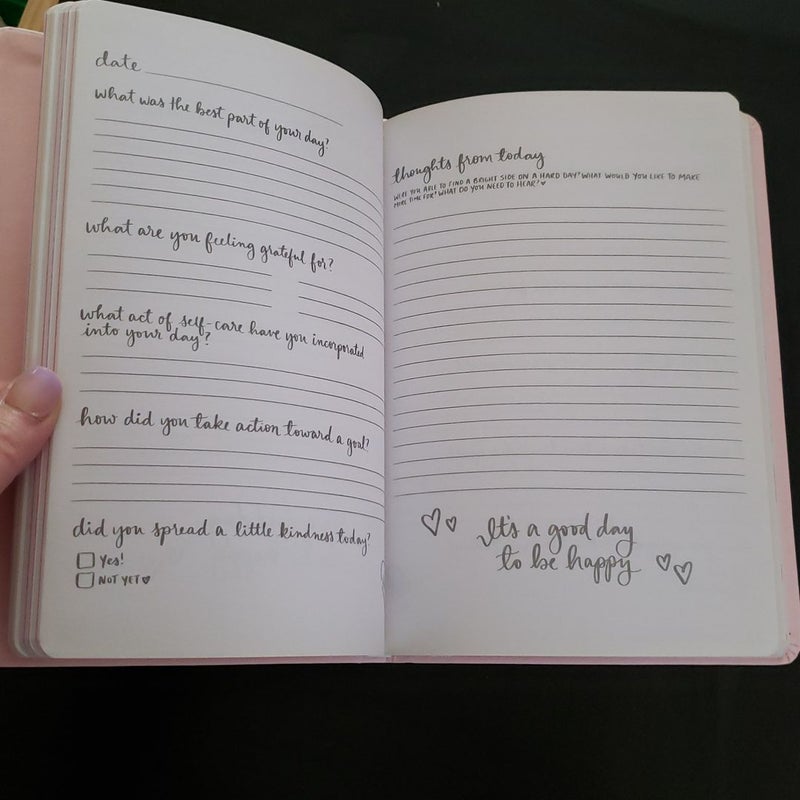 date
what was the best part of your day?
what are you feeling grateful for?
what act of self-care have you incorporated
into your day?
how did you take action toward a goal?
did you spread a little kindness today?
Yes!
NOT YET♥
thoughts from today
WERE YOU ABLE TO FIND A BRIGHT SIDE ON A HARD DAY? WHAT WOULD YOU LIKE TO MAKE
MORE TIME FOR? WHAT DO YOU NEED TO HEAR?♥
It's a good day
to be happy